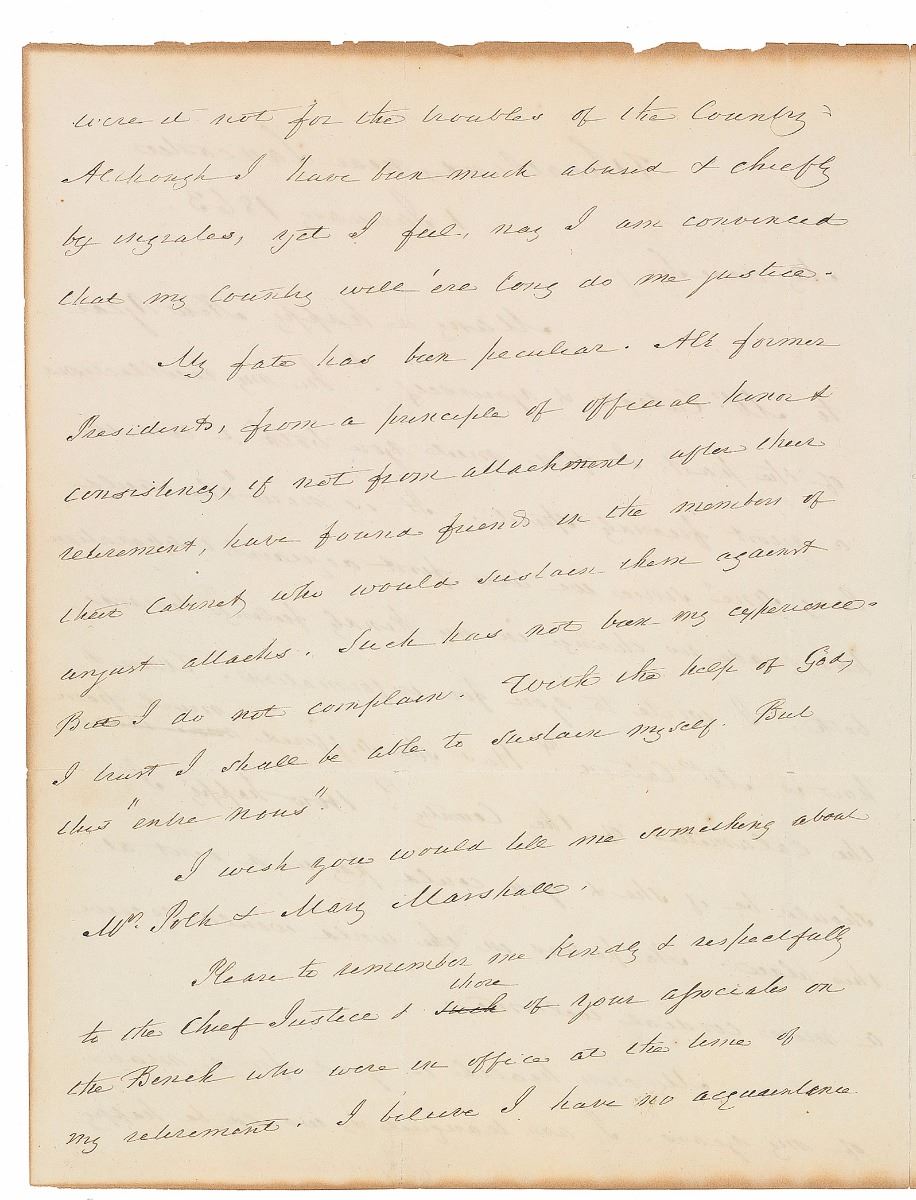 were it not for the troubles of the Country.
Although I have been much abused & chiefly
by ingrates, yet I feel, nay I am convinced
that my Country will 'ere long do me justice.
My fate has been peculiar. All former
Presidents, from a principle of official honor &
consistency, if not from attachment, after their
retirement, have found friends in the members of
their Cabinets who would sustain them against
unjust attacks. Such has not been my experience.
But I do not complain. With the help of God,
I trust I shall be able to sustain myself. But
this "entre nous".
I wish you would tell me something about
Mrs. Polk & Mary Marshall.
Please to remember me kindly & respectfully
those
to the Chief Justice & such of your associates on
the Bench who were in office at the time of
my retirement. I believe I have no acquaintance